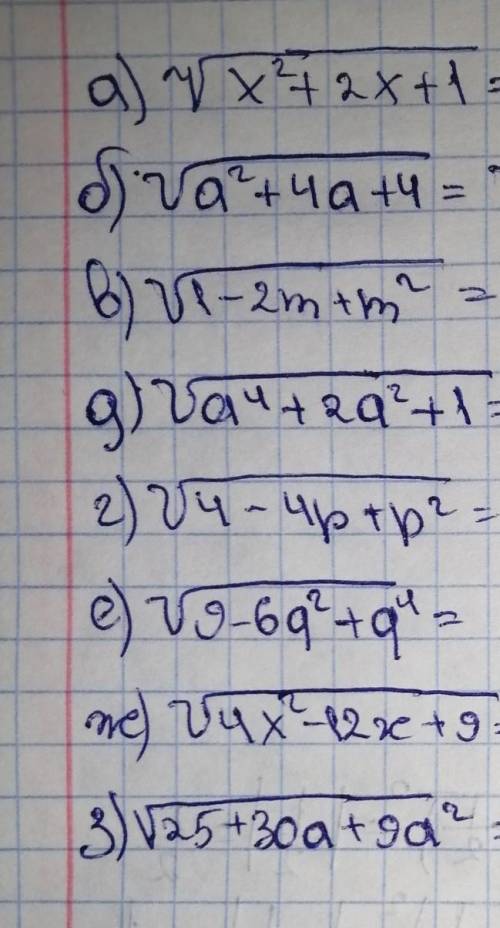 а) √x²+2x+1 =
б) √a²+4a+4 =
в) √1-2m+m² =
д) √a⁴+2a²+1 =
г) √4-4p+p² =
е) √9-6a²+a⁴ =
ж) √4x²-12x+9 =
з) √25+30a+9a² =